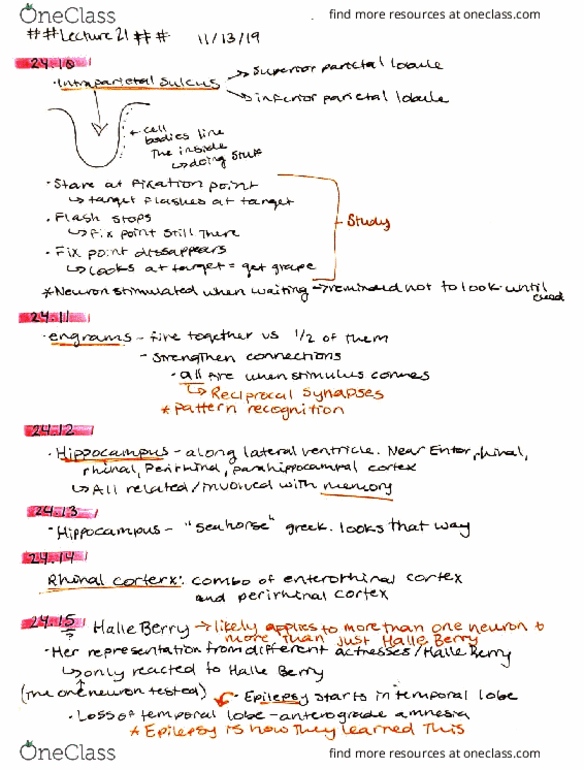 OneClass
find more resources at oneclass.com
##Lecture 21 ## # 11/13/19
24.10
• Intraparietal Sulcus → superior parietal lobule
→ inferior parietal lobule
← cell
bodies line
The inside
↳ doing stuff
• Stare at fixation point
↳ target flashes at target
• Flash stops
↳ Fix point still there
- Study
• Fix point dissappears
↳ looks at target = get grape
*Neuron stimulated when waiting → reminded not to look until
cued
24.11
• engrams - fire together vs 1/2 of them
- Strengthen connections
- all fire when stimulus comes
↳ Reciprocal Synapses
* pattern recognition
24.12
• Hippocampus - along lateral ventricle. Near Entorhinal,
rhinal, Perirhinal, parahippocampal cortex
↳ All related/involved with memory
24.13
• Hippocampus - "seahorse" greek. looks that way
24.14
Rhinal cortex: combo of enterorhinal cortex
and perirhinal cortex
24.15 Halle Berry → likely applies to more than one neuron &
? more than just Halle Berry
• Her representation from different actresses/Halle Berry
↳ only reacted to Halle Berry
(The one neuron tested) • Epilepsy starts in temporal lobe
• Loss of temporal lobe - anterograde amnesia
* Epilepsy is how they learned this
OneClass
find more resources at oneclass.com